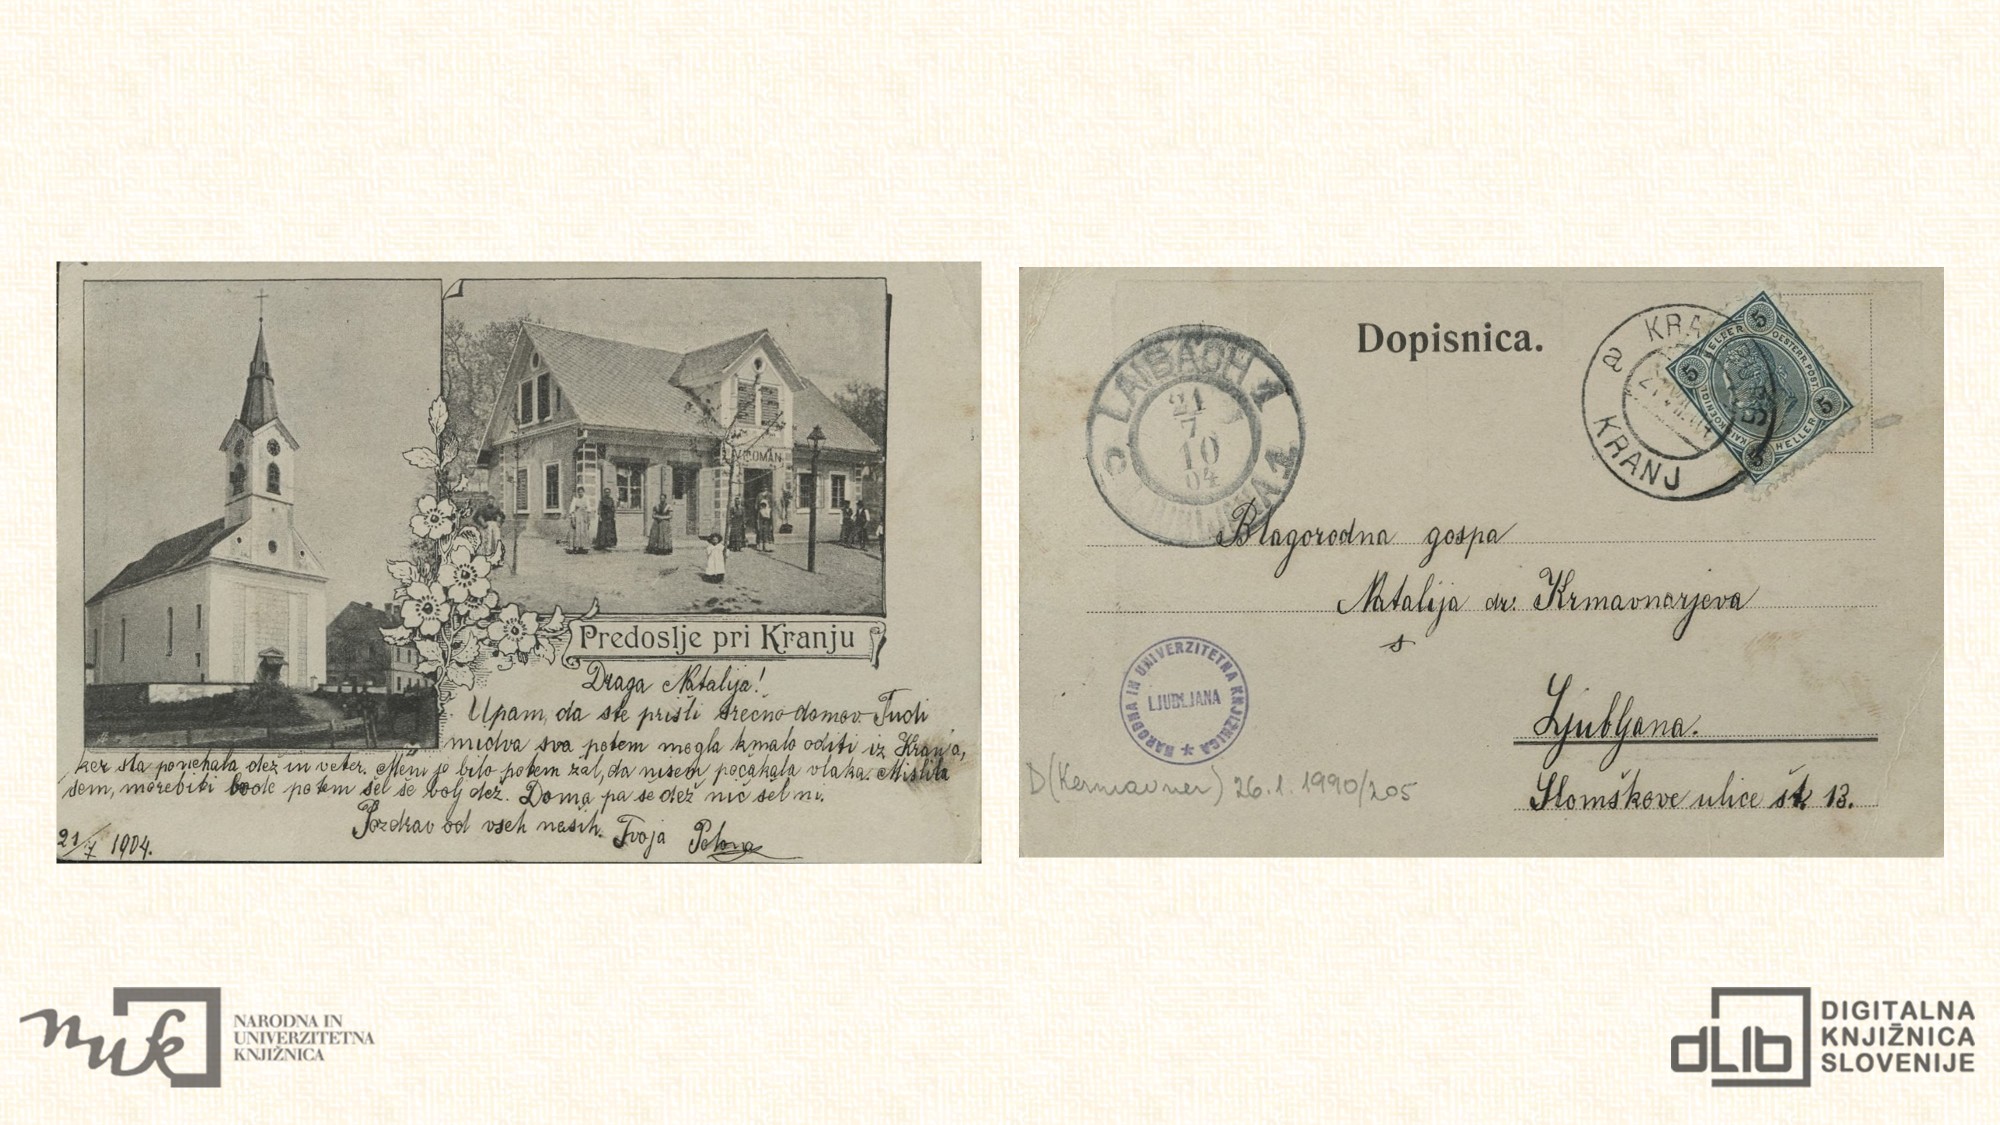 ROMAN
Predoslje pri Kranju
Draga Natalija!
Upam, da ste prišli srečno domov. Tudi
midva sva potem mogla kmalo oditi iz Kranja,
ker sta ponehala dež in veter. Meni je bilo potem žal, da nisem počakala vlaka. Mislila
sem, morebiti bode potem šel še bolj dež. Doma pa se dež nič šel ni.
Pozdrav od vseh naših. Tvoja Polona
21/7 1904.
Dopisnica.
LAIBACH 1
21
7
10
04
KRAINBURG
a
KRANJ
5 5 5 5
HELLER
OESTERR.POST.
HELLER
Blagorodna gospa
Natalija dr. Krmavnarjeva
s
Ljubljana.
Slomškove ulice št. 13.
NARODNA IN UNIVERZITETNA KNJIŽNICA
LJUBLJANA
D(Kermavner) 26.1.1990/205
nuk
NARODNA IN
UNIVERZITETNA
KNJIŽNICA
dLIb
DIGITALNA
KNJIŽNICA
SLOVENIJE